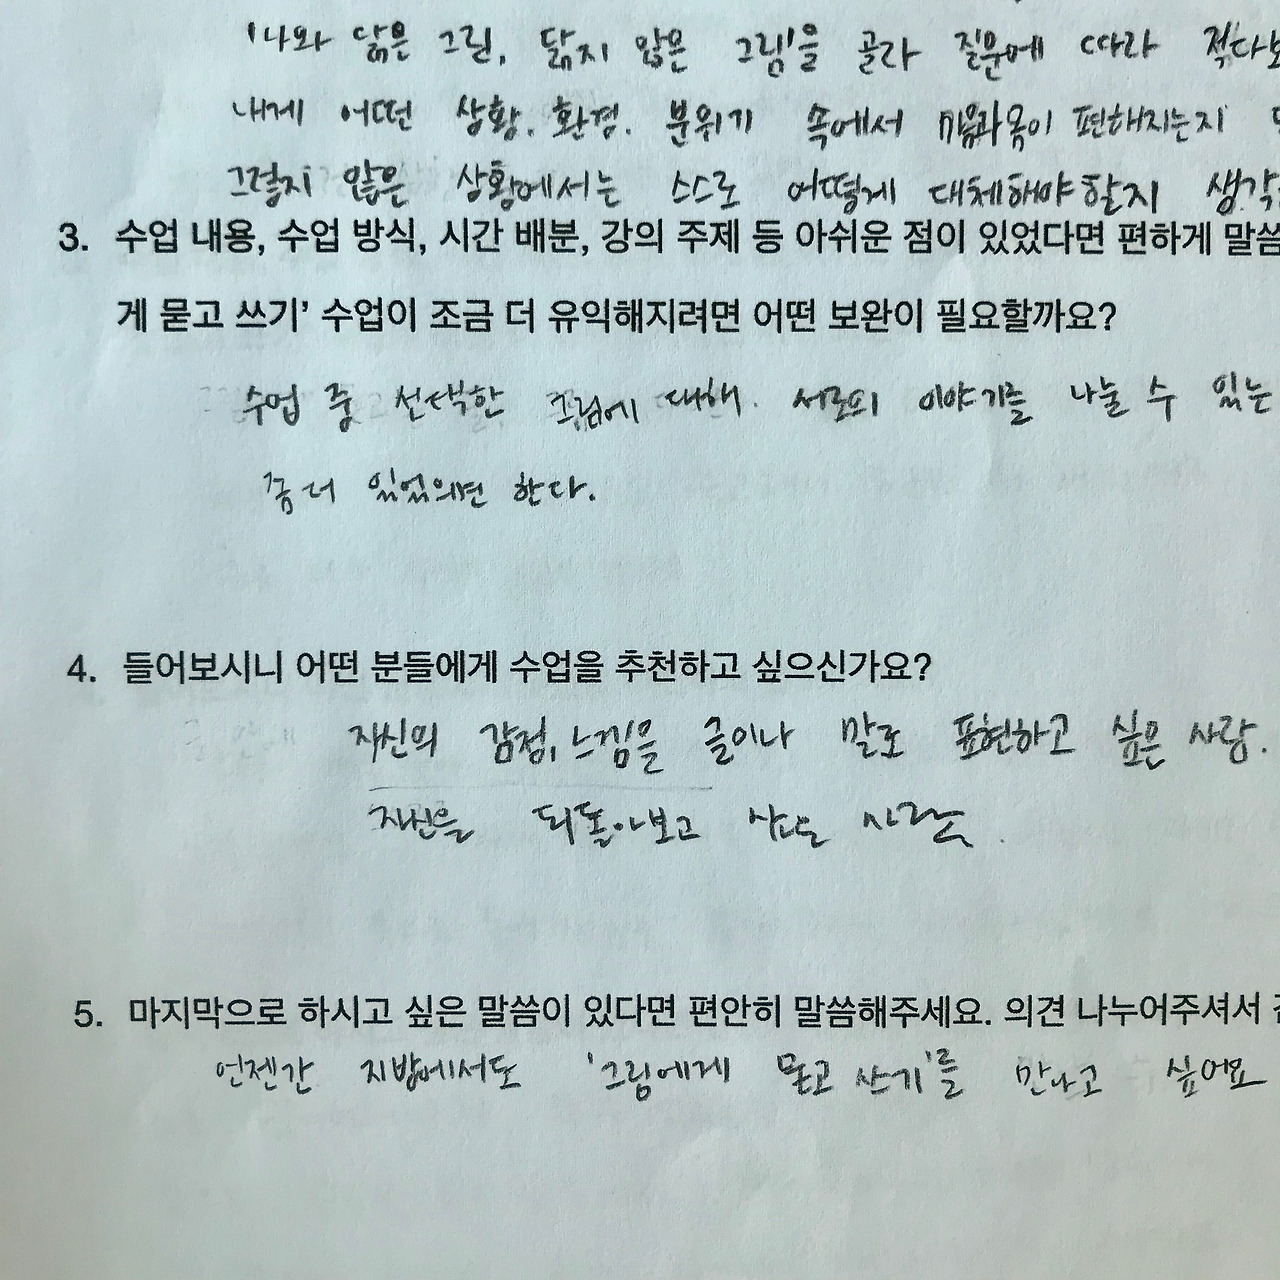 '나와 닮은 그림, 닮지 않은 그림'을 골라 질문에 따라 적다보
내게 어떤 상황. 환경. 분위기 속에서 마음과 몸이 편해지는지
그렇지 않은 상황에서는 스스로 어떻게 대체해야 할지 생각
3. 수업 내용, 수업 방식, 시간 배분, 강의 주제 등 아쉬운 점이 있었다면 편하게 말씀
게 묻고 쓰기' 수업이 조금 더 유익해지려면 어떤 보완이 필요할까요?
수업 중 선택한 그림에 대해. 서로의 이야기를 나눌 수 있는
좀 더 있었으면 한다.
4. 들어보시니 어떤 분들에게 수업을 추천하고 싶으신가요?
자신의 감정, 느낌을 글이나 말로 표현하고 싶은 사람.
자신을 되돌아보고 싶은 사람.
5. 마지막으로 하시고 싶은 말씀이 있다면 편안히 말씀해주세요. 의견 나누어주셔서
언젠간 지방에서도 '그림에게 묻고 쓰기'를 만나고 싶어요